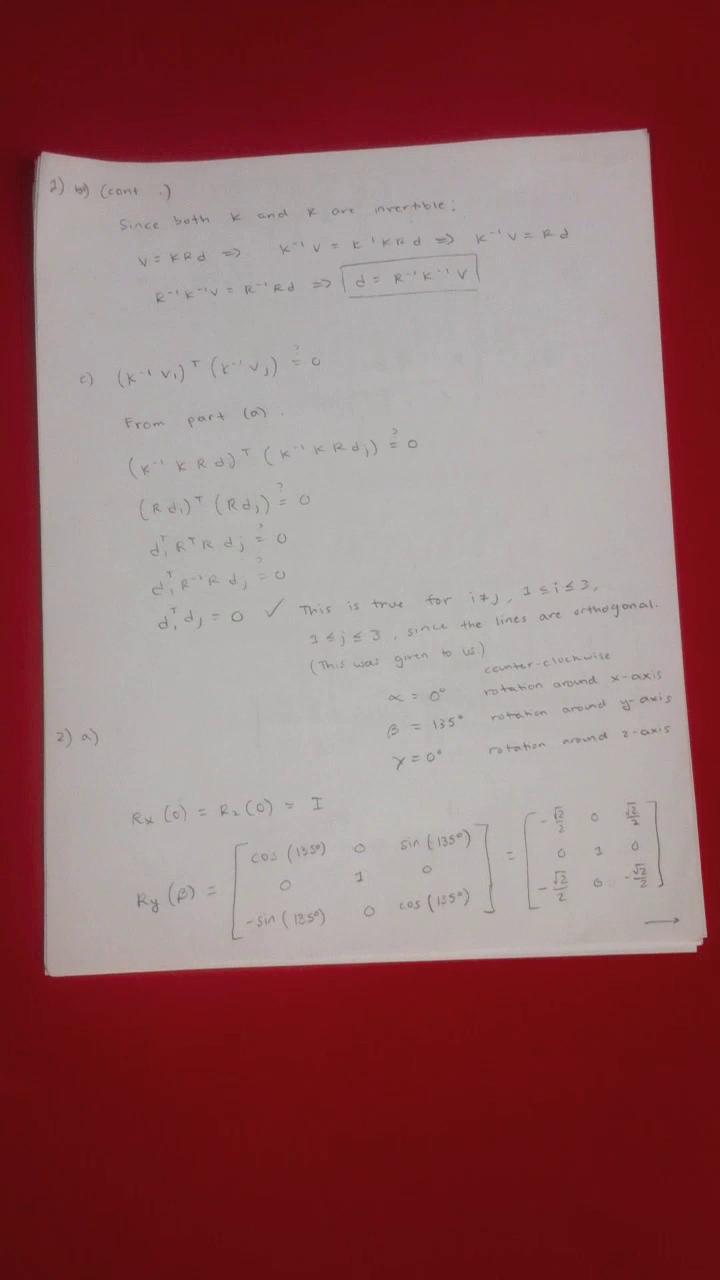 1) b) (cont.)
Since both K and R are invertible:
V = KRd => K⁻¹V = K⁻¹KRd => K⁻¹V = Rd
R⁻¹K⁻¹V = R⁻¹Rd => d = R⁻¹K⁻¹V
c) (K⁻¹Vᵢ)ᵀ (K⁻¹Vⱼ) ?= 0
From part (a).
(K⁻¹KRd)ᵀ (K⁻¹KRdⱼ) ?= 0
(Rdᵢ)ᵀ (Rdⱼ) ?= 0
dᵢᵀRᵀRdⱼ ?= 0
dᵢᵀR⁻¹Rdⱼ ?= 0
dᵢᵀdⱼ = 0 ✓ This is true for i≠j, 1≤i≤3,
1≤j≤3, since the lines are orthogonal.
(This was given to us.)
counter-clockwise
α = 0° rotation around x-axis
2) a)
β = 135° rotation around y-axis
γ = 0° rotation around z-axis
Rx(0) = Rz(0) = I
Ry(β) = [cos(135°) 0 sin(135°) = [-√2/2 0 √2/2
0 1 0 0 1 0
-sin(135°) 0 cos(135°)] -√2/2 0 -√2/2]
→